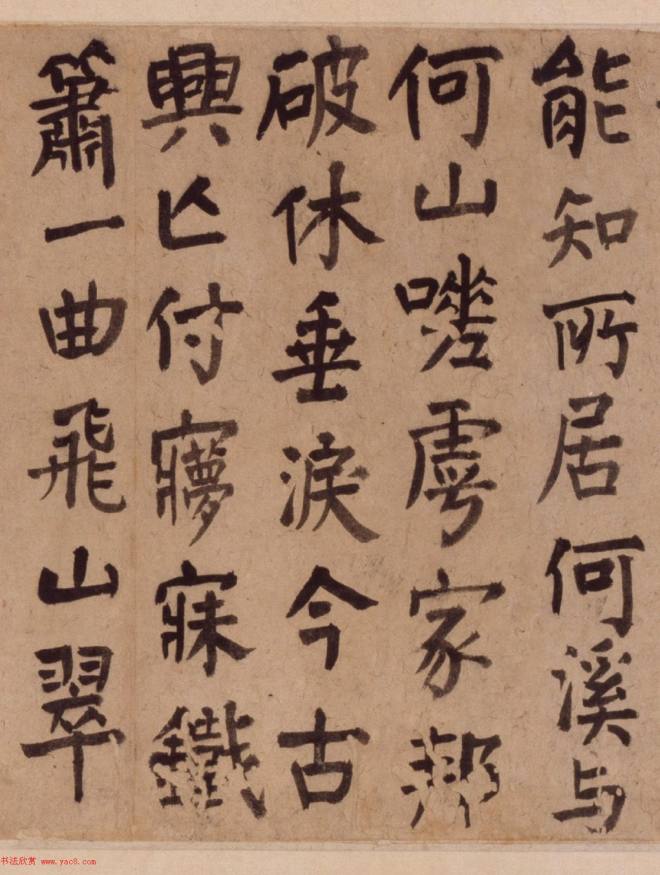 能知所居何溪与
何山嗟虖家邦
破休垂淚今古
興亾付㝱寐鐵
簫一曲飛山翠
书法欣赏 www.yac8.com